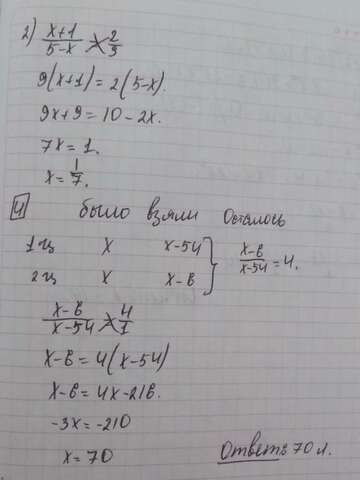 2) x+1/5-x = 2/9
9(x+1)=2(5-x).
9x+9=10-2x.
7x=1.
x=1/7.
4 было взяли Осталось
1 ц x x-54
2 ц x x-6
x-6/x-54=4.
x-6/x-54 = 4/1
x-6=4(x-54)
x-6=4x-216.
-3x=-210
x=70
Ответ: 70 л.